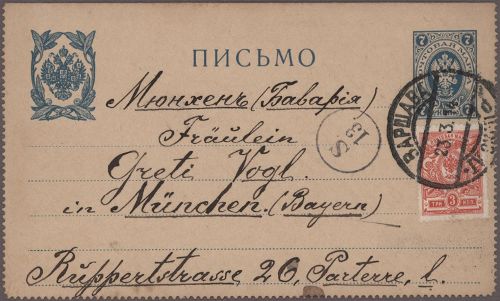 7 7
ПИСЬМО
ПОЧТОВАЯ МАРКА
Мюнхенъ (Баварія)
Fräulein
13 S
Greti Vogl.
ВАРШАВА
3 12
ТРИ 3 КОП.
in München. (Bayern)
Ruppertstrasse 26, Parterre, l.